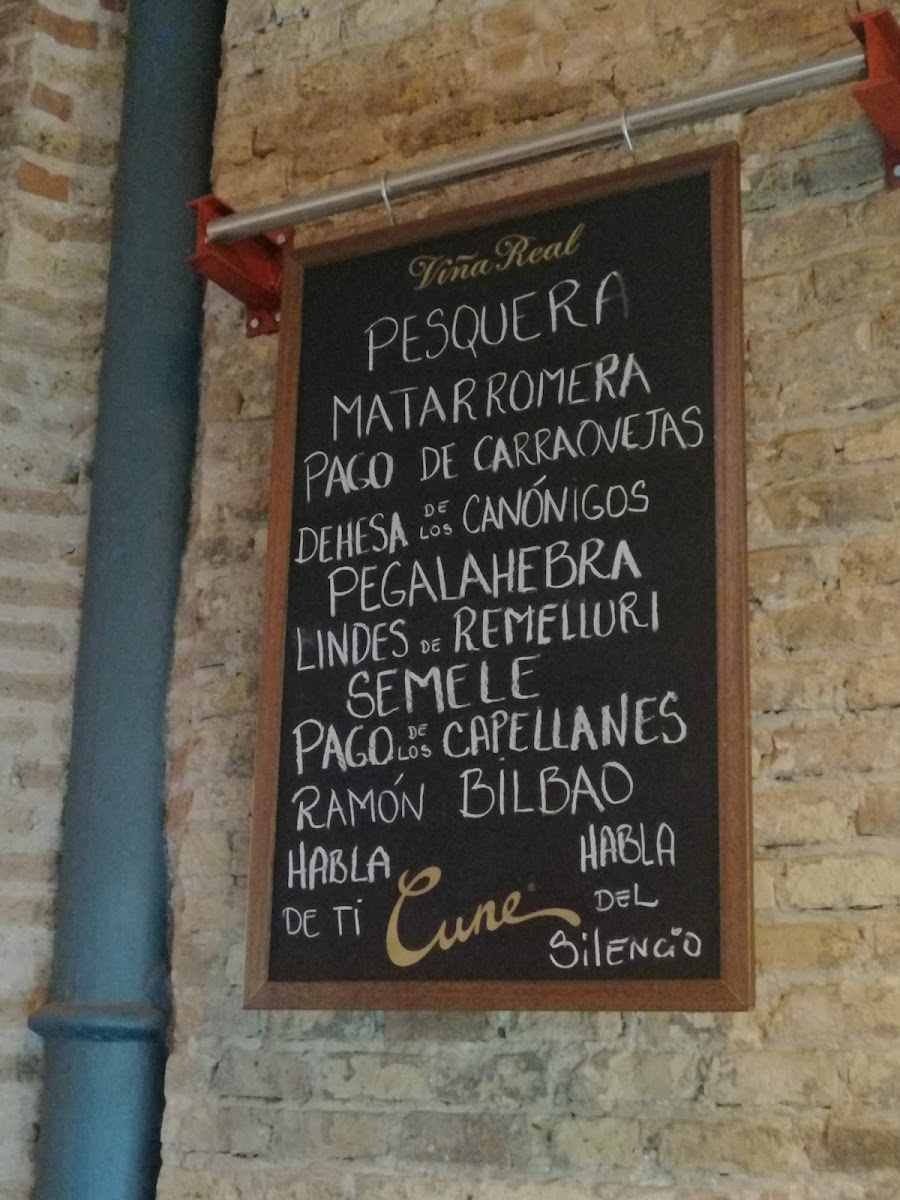 Viña Real
PESQUERA
MATARROMERA
PAGO DE CARRAOVEJAS
DEHESA DE LOS CANÓNIGOS
PEGALAHEBRA
LINDES DE REMELLURI
SEMELE
PAGO DE LOS CAPELLANES
RAMÓN BILBAO
HABLA
DE TI
Cune
HABLA
DEL
SILENCIO